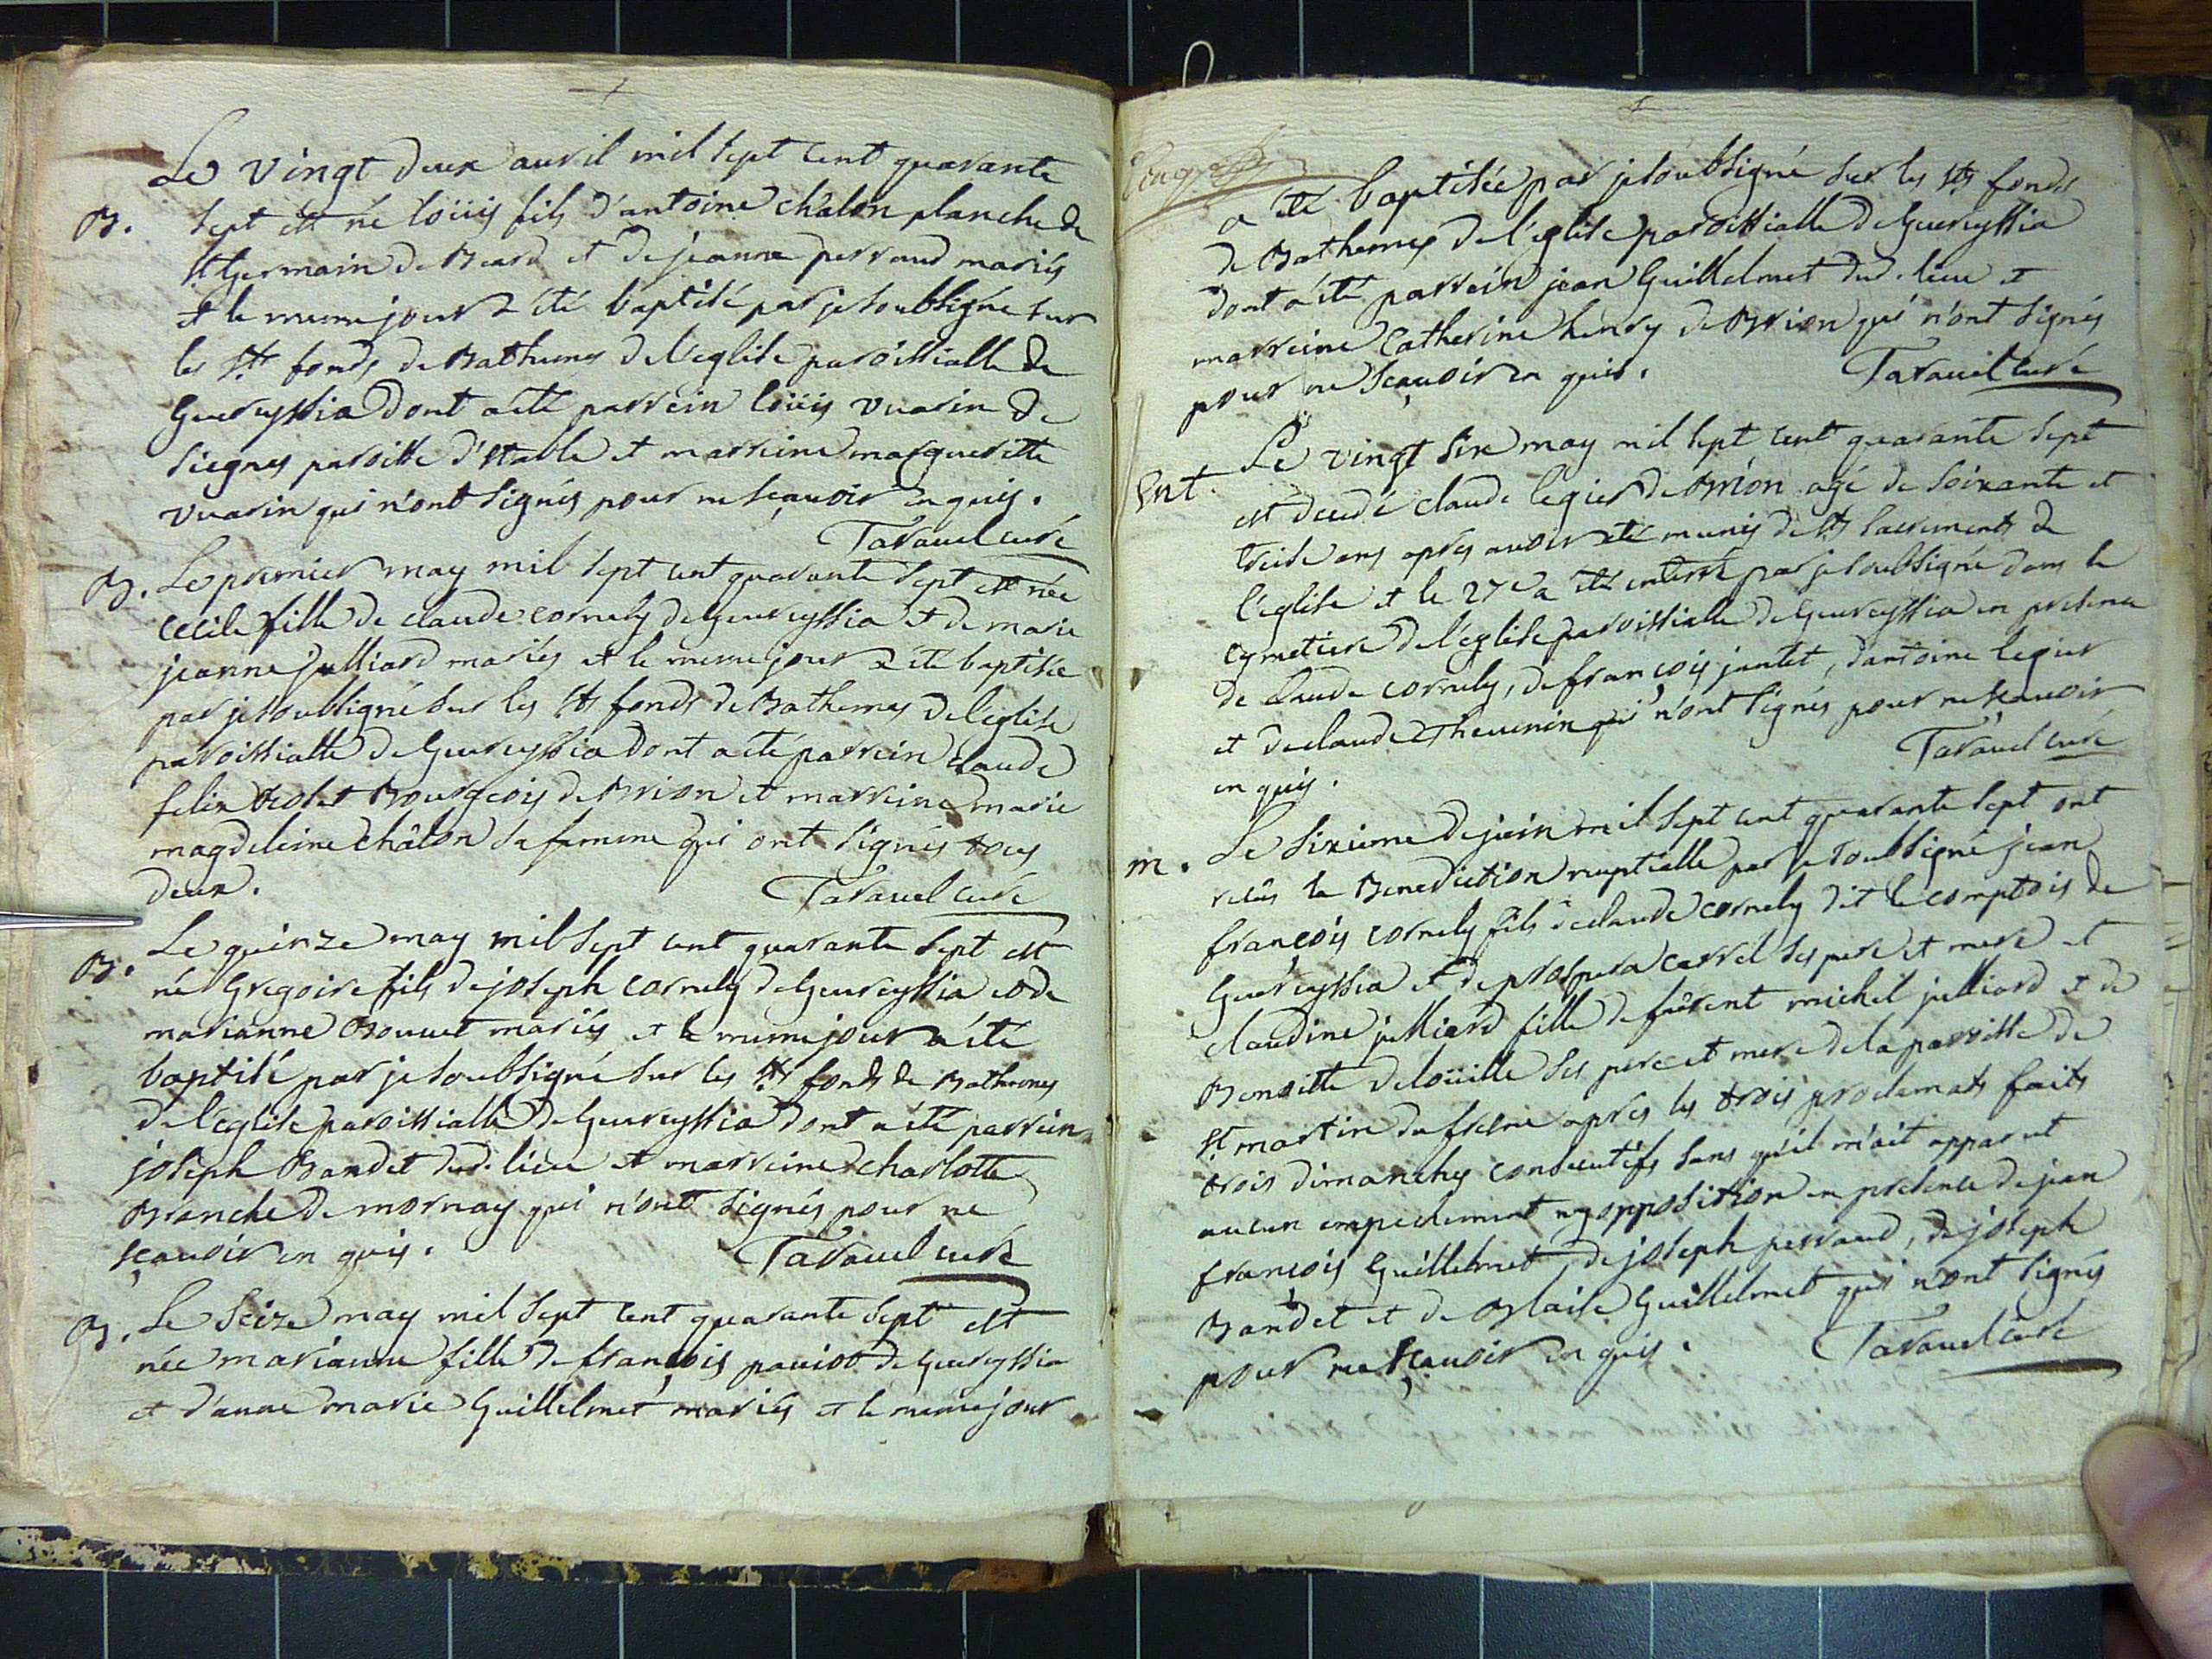 Le vingt deux avril mil sept cent quarante
B. sept est né loüis fils d'antoine châlon planche de
St Germain de Beard et de jeanne perraud mariés
et le meme jour a été baptisé par je soubsigné sur
les Sts fonds de Bathemes de l'eglise paroissialle de
Geureyssia dont a été parrein loüis vuarin de
siegnes paroisse d'Stable et marreine margueritte
vuarin qui n'ont signés pour ne sçauoir en quis.
Tarauel curé
B. Le premier may mil sept cent quarante sept est née
cecile fille de claude cornely de Geureyssia et de marie
jeanne julliard mariés et le meme jour a été baptisée
par je soubsigné sur les Sts fonds de Bathemes de l'eglise
paroissialle de Geureyssia dont a été parrein claude
felix Bourgeois de Brion et marreine marie
magdeleine châlon sa femme qui ont signés tous
deux.
Tarauel curé
B. Le quinze may mil sept cent quarante sept est
né Gregoire fils de joseph cornely de Geureyssia et de
marianne Bouuet mariés et le meme jour a été
baptisé par je soubsigné sur les Sts fonds de Bathemes
de l'eglise paroissialle de Geureyssia dont a été parrein
joseph Bandet dud. lieu et marreine charlotte
Branche de mornay qui n'ont signés pour ne
sçauoir en quis.
Tarauel curé
B. Le seize may mil sept cent quarante sept est
née marianne fille de françois pauiot de Geureyssia
et d'anne marie Guillelmet mariés et le meme jour
a été baptisée par je soubsigné sur les Sts fonds
de Bathemes de l'eglise paroissialle de Geureyssia
dont a été parrein jean Guillelmet dud. lieu et
marreine Catherine henry de Brion qui n'ont signés
pour ne sçauoir en quis.
Tarauel curé
Ent. Le vingt six may mil sept cent quarante sept
est decedé claude legier de Brion agé de soixante et
treise ans apres auoir été munis de Sts sacrements de
l'eglise et le 27e a été enterré par je soubsigné dans le
cymetiere de l'eglise paroissialle de Geureyssia en presence
de claude cornely, de françois jantet, d'antoine legier
et de claude Theuenin qui n'ont signés pour ne sçauoir
en quis.
Tarauel curé
m. Le sixieme de juin mil sept cent quarante sept ont
reçus la Benediction nuptialle par je soubsigné jean
françois cornely fils de claude cornely dit le comptois de
Geureyssia et de prospera carrel ses pere et mere et
claudine julliard fille de fûrent michel julliard et de
Benoitte deloüille ses pere et mere de la paroisse de
St martin du fresne apres les trois proclamats faits
trois dimanches consecutifs sans qu'il m'ait apparut
aucun empechement ny opposition en presence de jean
françois Guillelmet, de joseph perraud, de joseph
Bandet et de Blaise Guillelmet qui n'ont signés
pour ne sçauoir en quis.
Tarauel curé